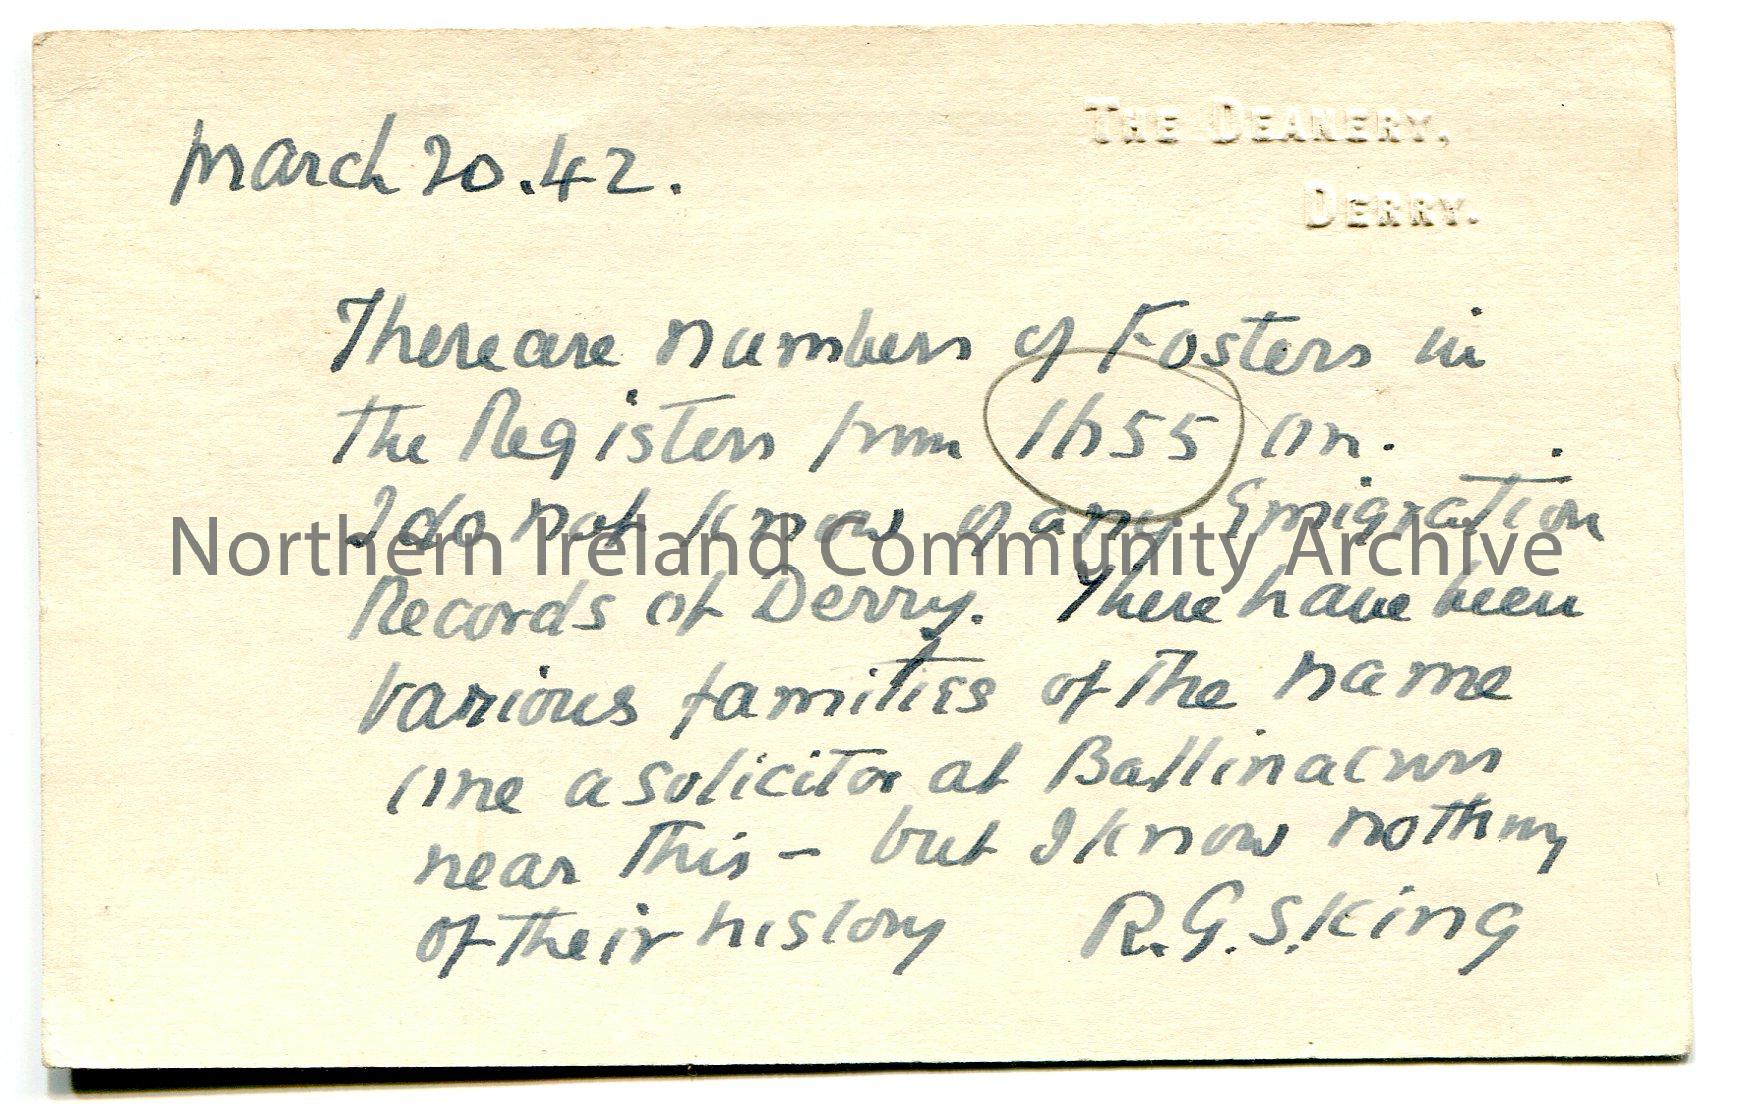 THE DEANERY,
DERRY.
March 20.42.
There are numbers of Fosters in
the Registers from 1655 on.
I do not know of any Emigration
Northern Ireland Community Archive
Records of Derry. There have been
various families of the name
one a solicitor at
near this – but I know nothing
of their history R.G.S.King